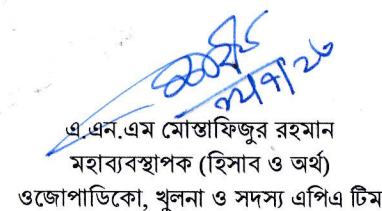 এ.এন.এম মোস্তাফিজুর রহমান
মহাব্যবস্থাপক (হিসাব ও অর্থ)
ওজোপাডিকো, খুলনা ও সদস্য এপিএ টিম